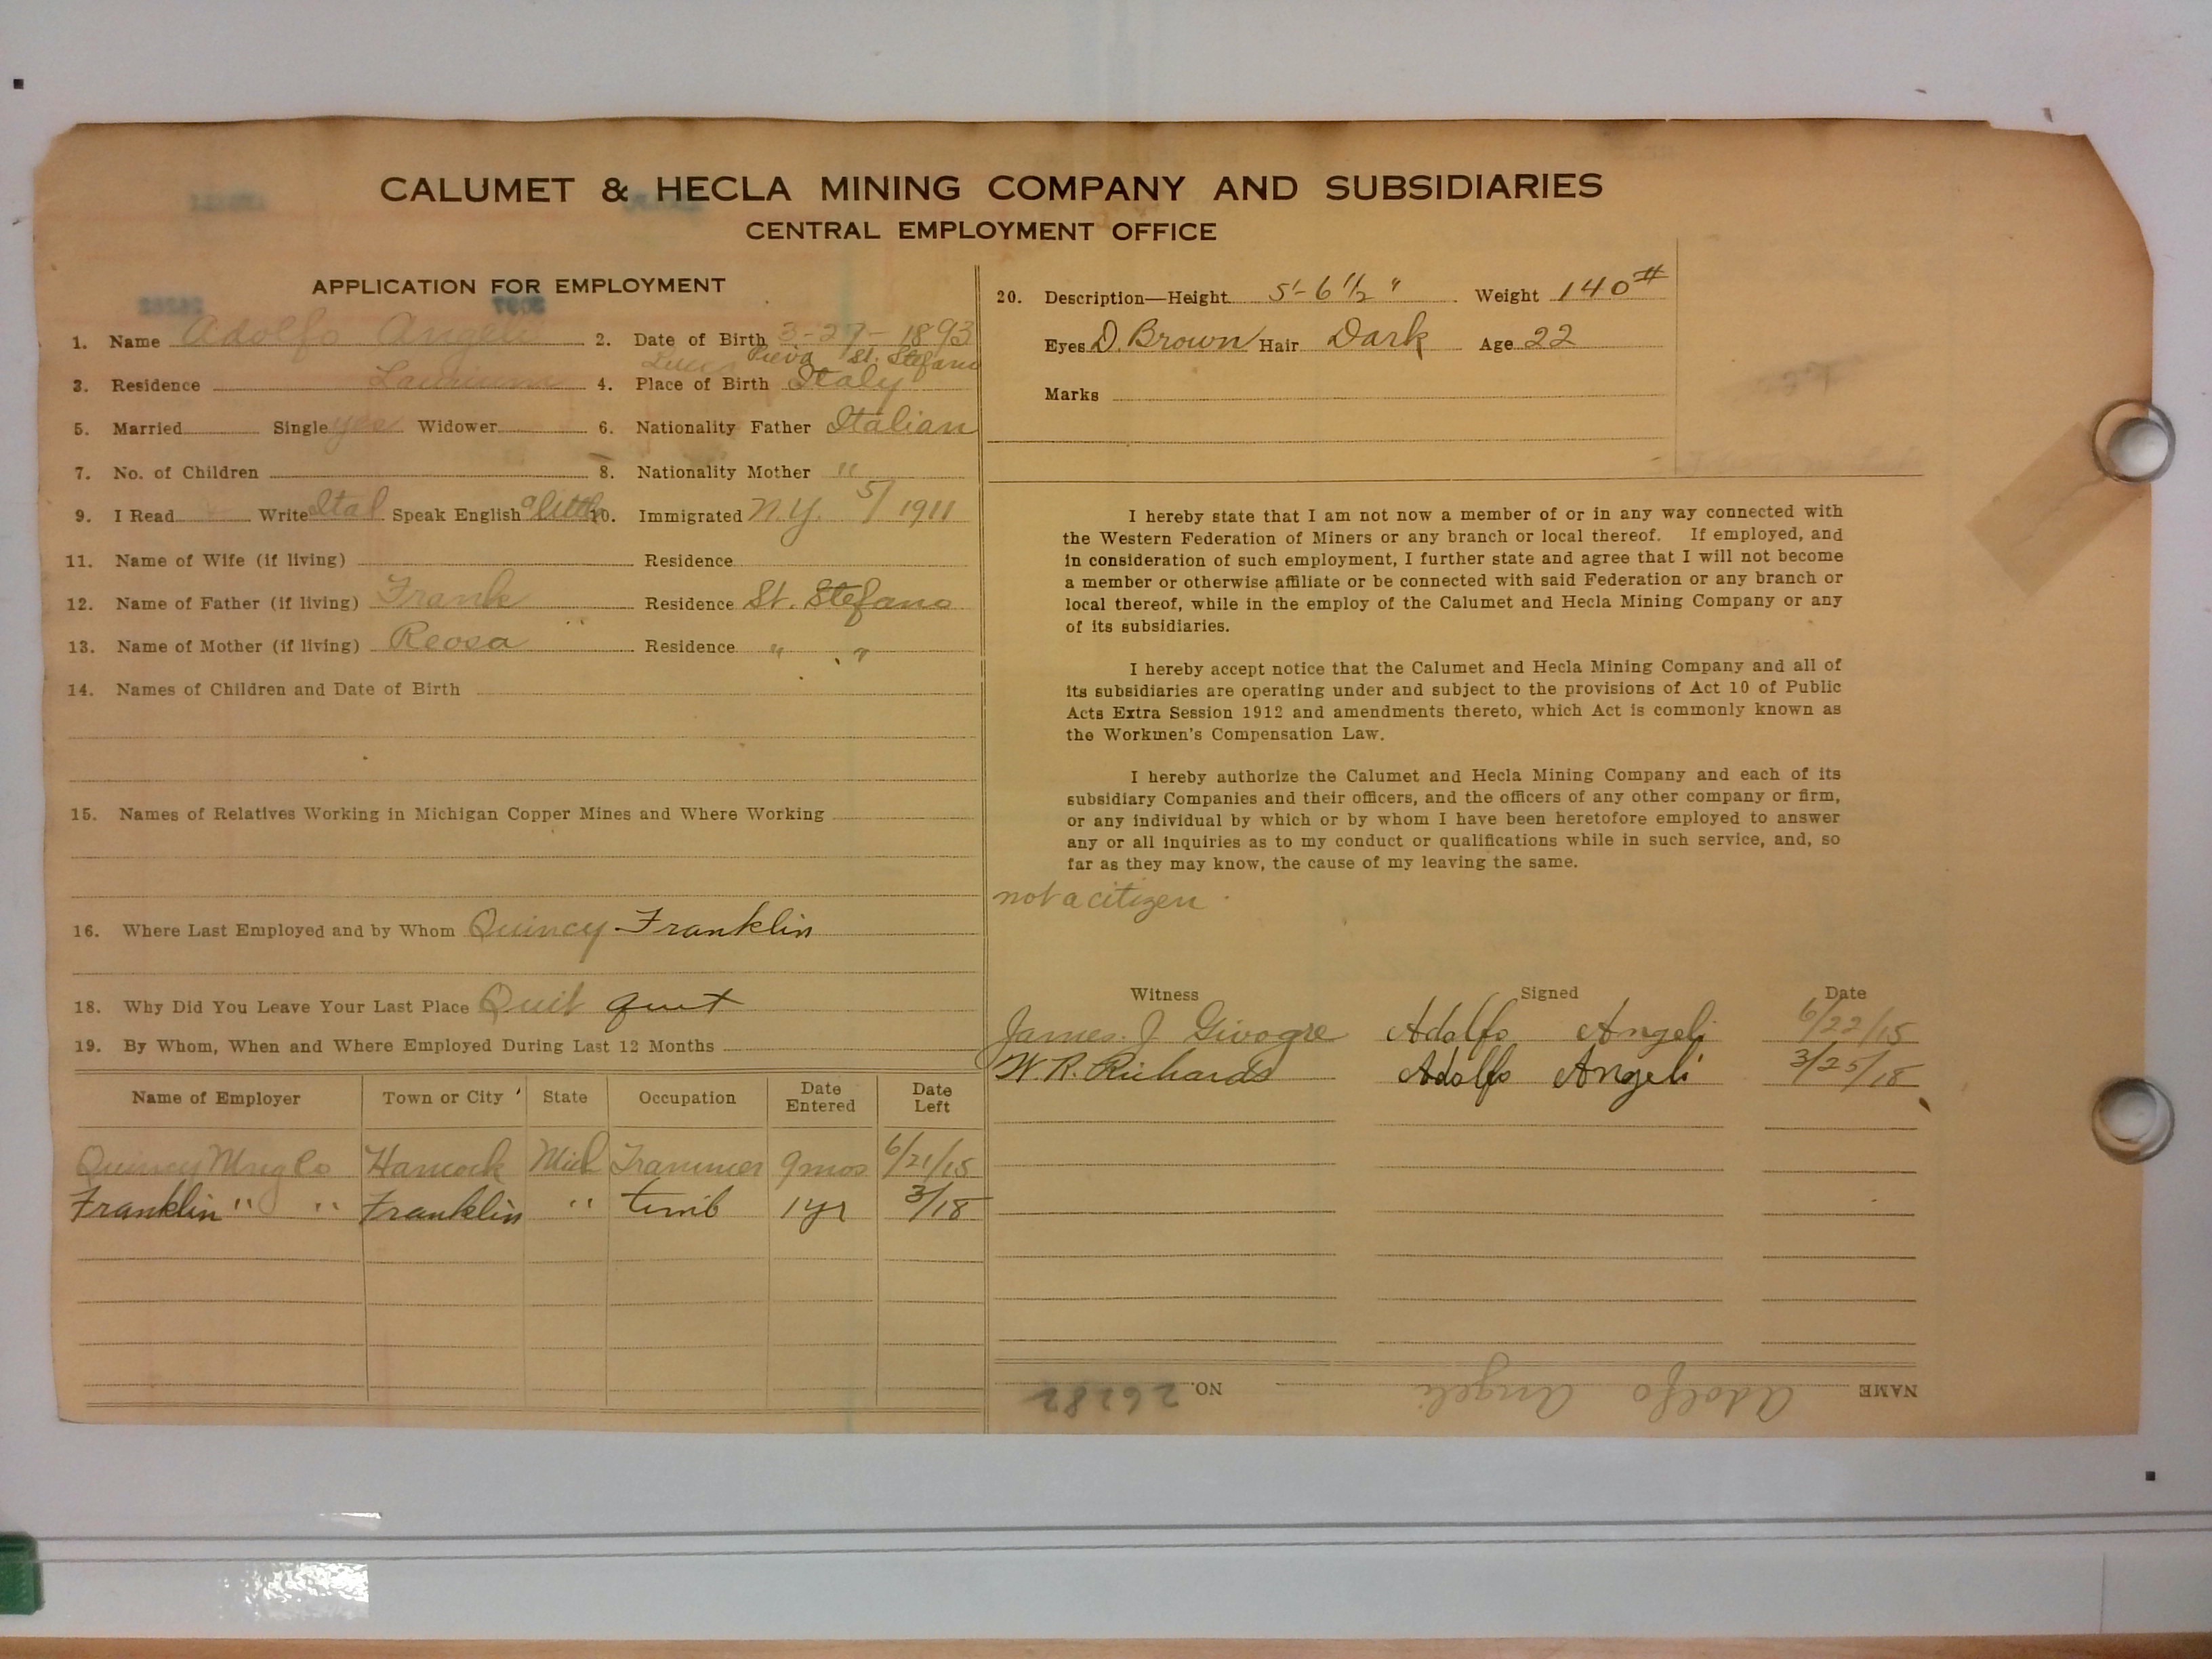 CALUMET & HECLA MINING COMPANY AND SUBSIDIARIES
CENTRAL EMPLOYMENT OFFICE
APPLICATION FOR EMPLOYMENT
1. Name Adolfo Angeli 2. Date of Birth 3-27-1893
Pieva St. Stefano
3. Residence Laurium 4. Place of Birth Italy
5. Married Single yes Widower 6. Nationality Father Italian
7. No. of Children 8. Nationality Mother "
9. I Read Write Ital Speak English a little 10. Immigrated N.Y. 5/1911
11. Name of Wife (if living) Residence
12. Name of Father (if living) Frank Residence St. Stefano
13. Name of Mother (if living) Reosa Residence " "
14. Names of Children and Date of Birth
15. Names of Relatives Working in Michigan Copper Mines and Where Working
16. Where Last Employed and by Whom Quincy - Franklin
18. Why Did You Leave Your Last Place Quit quit
19. By Whom, When and Where Employed During Last 12 Months
Name of Employer Town or City State Occupation Date Entered Date Left
Quincy Mng Co Hancock Mich Trammer 9mos 6/21/15
Franklin " " Franklin " timb 1 yr 3/18
20. Description—Height 5'-6 1/2" Weight 140#
Eyes D. Brown Hair Dark Age 22
Marks
I hereby state that I am not now a member of or in any way connected with
the Western Federation of Miners or any branch or local thereof. If employed, and
in consideration of such employment, I further state and agree that I will not become
a member or otherwise affiliate or be connected with said Federation or any branch or
local thereof, while in the employ of the Calumet and Hecla Mining Company or any
of its subsidiaries.
I hereby accept notice that the Calumet and Hecla Mining Company and all of
its subsidiaries are operating under and subject to the provisions of Act 10 of Public
Acts Extra Session 1912 and amendments thereto, which Act is commonly known as
the Workmen's Compensation Law.
I hereby authorize the Calumet and Hecla Mining Company and each of its
subsidiary Companies and their officers, and the officers of any other company or firm,
or any individual by which or by whom I have been heretofore employed to answer
any or all inquiries as to my conduct or qualifications while in such service, and, so
far as they may know, the cause of my leaving the same.
not a citizen
Witness Signed Date
James. J Givogre Adolfo Angeli 6/22/15
W. R. Richards Adolfo Angeli 3/25/18
NAME Adolfo Angeli NO. 26282